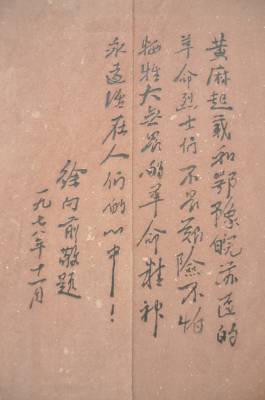 黄麻起义和鄂豫皖苏区的
革命烈士们不畏艰险不怕
牺牲大无畏的革命精神
永远活在人们的心中！
徐向前敬题
一九七八年十一月